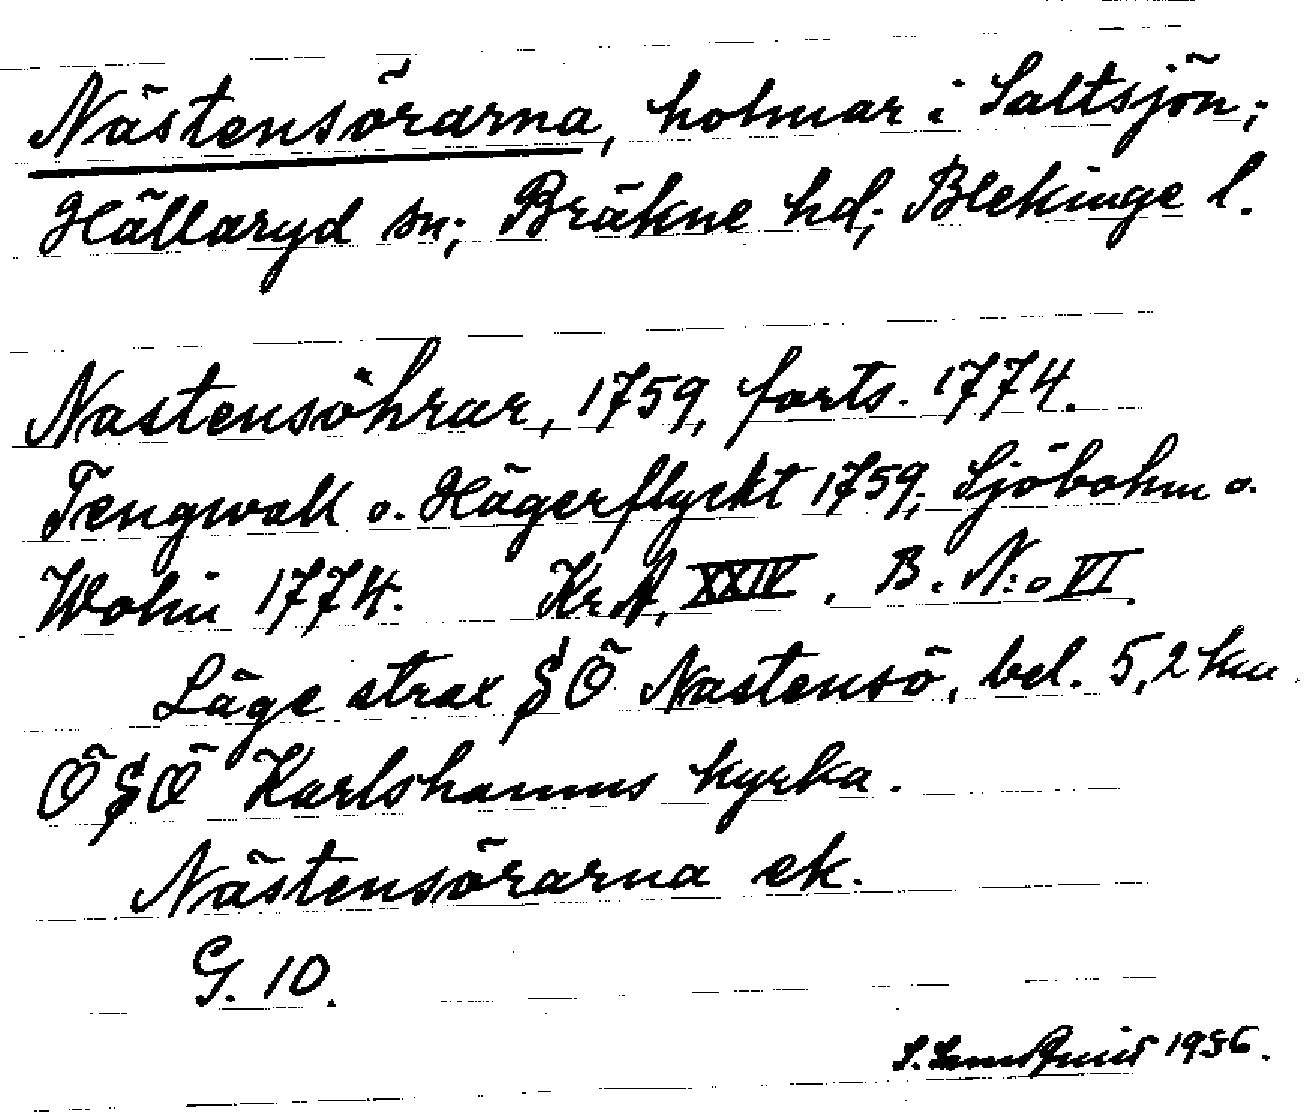 Nästensörarna, holmar i Saltsjön;
Hällaryd sn; Bräkne hd; Blekinge l.
Nastensöhrar, 1759, forts. 1774.
Tengwall o. Hägerflyckt 1759; Sjöbohm o.
Wohin 1774. Kr.A, XXIV. B. N:o VI.
Läge strax SÖ Nastensö, bel. 5,2 km
ÖSÖ Karlshamns kyrka.
Nästensörarna ek.
G. 10.
S. 1956.